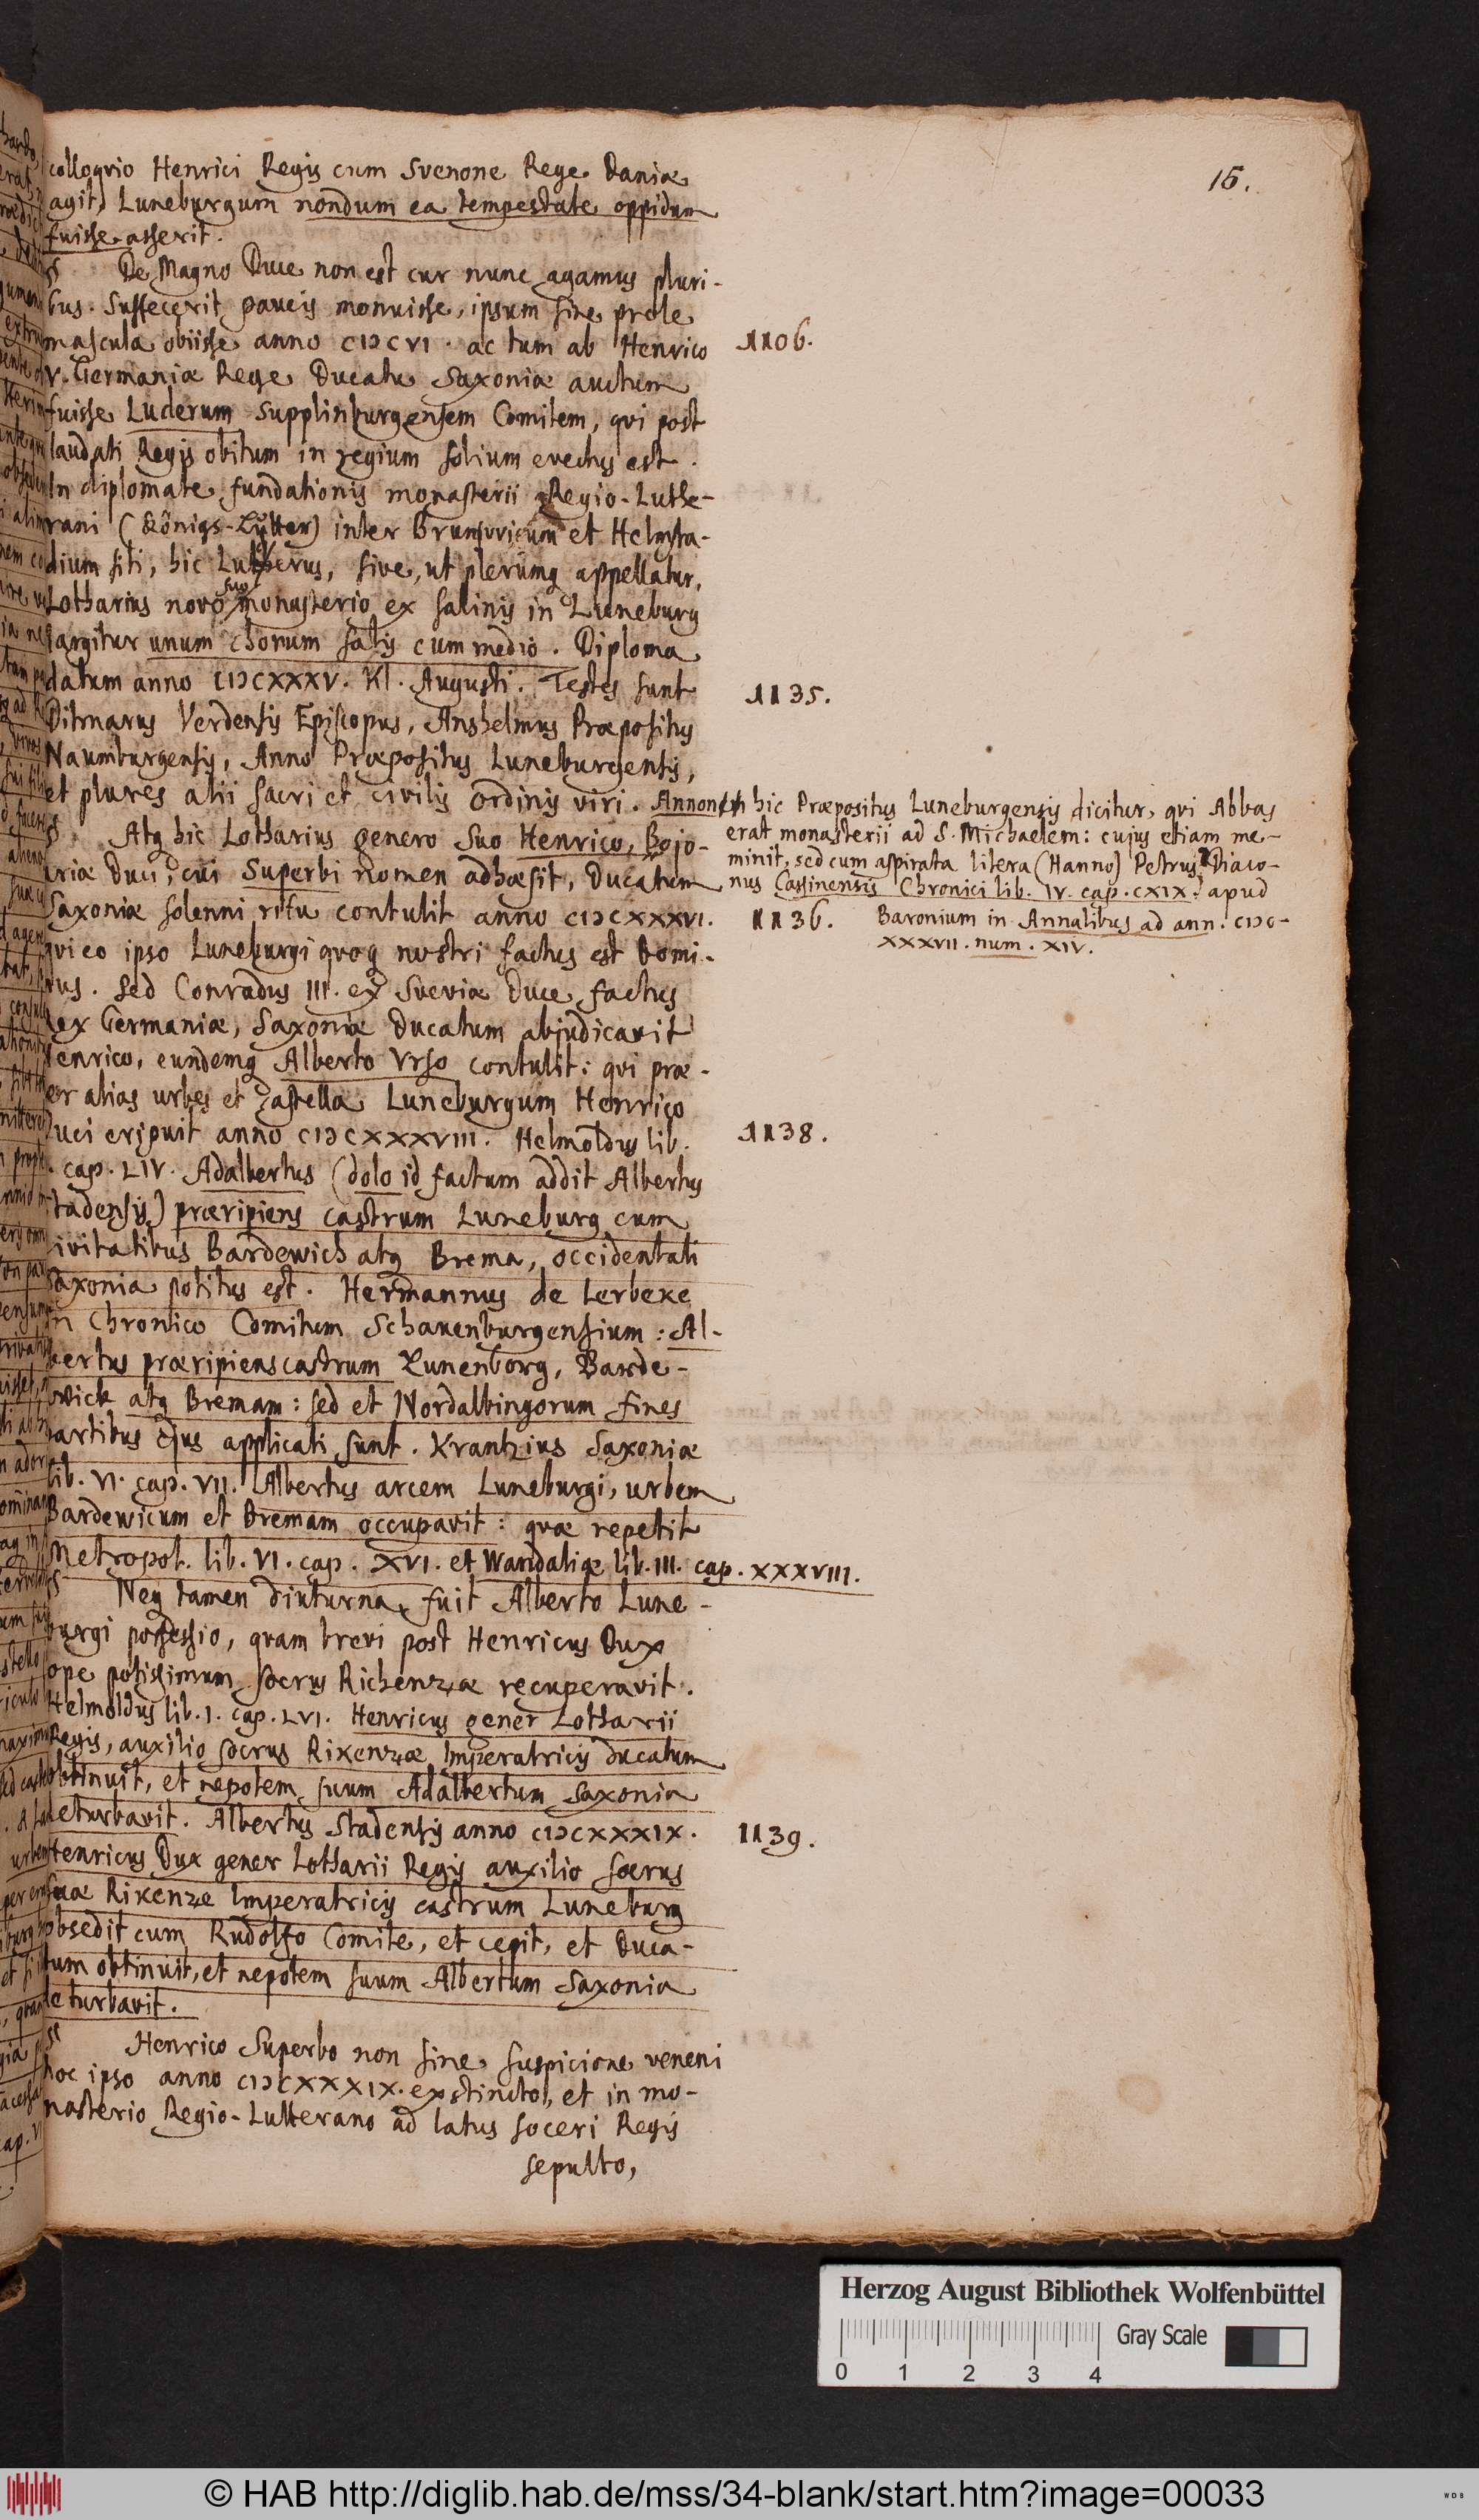 15.
colloqvio Henrici Regis cum Svenone Rege Daniæ
agit, Luneburgum nondum ea tempestate oppidum
fuisse asserit.
§ De Magno Duce non est cur nunc agamus pluri-
bus. Suffecerit paucis monuisse, ipsum sine prole
mascula obiisse anno CIↃCVI. ac tum ab Henrico
1106.
V. Germaniæ Rege Ducatu Saxoniæ auctum
fuisse Luderum Supplinburgensem Comitem, qvi post
laudati Regis obitum in regium solium evectus est.
In diplomate fundationis monasterii Regio-Luthe-
rani (Königs-Lutter) inter Brunsvicum et Helmsta-
dium siti, hic Lutherus, sive, ut plerumq appellatur,
Lotharius novo suo monasterio ex salinis in Luneburg
largitur unum chorum salis cum medio. Diploma
datum anno CIↃCXXXV. Kl. Augusti. Testes sunt
1135.
Ditmarus Verdensis Episcopus, Anshelmus Præpositus
Naumburgensis, Anno Præpositus Luneburgensis,
et plures alii sacri et civilis ordinis viri. Annon
hic Præpositus Luneburgensis dicitur, qvi Abbas
erat monasterii ad S. Michaelem: cujus etiam me-
minit, sed cum aspirata litera (Hanno) Petrus Diaco-
nus Cassinensis Chronici lib. IV. cap. CXIX. apud
Baronium in Annalibus ad ann. CIↃC-
XXXVII. num. XIV.
§ Atq hic Lotharius genero suo Henrico, Bojo-
ariæ Duci, cui Superbi nomen adhæsit, Ducatum
Saxoniæ solenni ritu contulit anno CIↃCXXXVI.
1136.
qvi eo ipso Luneburgi qvoq nostri factus est Domi-
nus. Sed Conradus III. ex Sueviæ Duce factus
rex Germaniæ, Saxoniæ Ducatum abjudicavit
Henrico, eundemq Alberto Urso contulit: qvi præ-
ter alias urbes et castella Luneburgum Henrico
Duci eripuit anno CIↃCXXXVIII. Helmoldus lib.
1138.
cap. LIV. Adalbertus (dolo id factum addit Albertus
Stadensis) præripiens castrum Luneburg cum
civitatibus Bardewich atq Brema, occidentali
Saxonia potitus est. Hermannus de Lerbeke
in Chronico Comitum Schauenburgensium: Al-
bertus præripiens castrum Lunenborg, Barde-
wick atq Bremam: sed et Nordalbingorum fines
partibus ejus applicati sunt. Krantzius Saxoniæ
lib. VI. cap. VII. Albertus arcem Luneburgi, urbem
Bardewicum et Bremam occupavit: qvæ repetit
Metropol. lib. VI. cap. XVI. et Wandaliæ lib. III. cap. XXXVIII.
§ Neq tamen diuturna fuit Alberto Lune-
burgi possessio, qvam brevi post Henricus Dux
ope potissimum socrus Richenzæ recuperavit.
Helmoldus lib. I. cap. LVI. Henricus gener Lotharii
Regis, auxilio socrus Rikenzæ Imperatricis ducatum
obtinuit, et nepotem suum Adalbertum Saxonia
deturbavit. Albertus Stadensis anno CIↃCXXXIX.
1139.
Henricus Dux gener Lotharii Regis auxilio socrus
suæ Rikenze Imperatricis castrum Luneburg
obsedit cum Rudolfo Comite, et cepit, et Duca-
tum obtinuit, et nepotem suum Albertum Saxonia
deturbavit.
§ Henrico Superbo non sine suspicione veneni
hoc ipso anno CIↃCXXXIX. exstincto, et in mo-
nasterio Regio-Lutterano ad latus soceri Regis
sepulto,
Herzog August Bibliothek Wolfenbüttel
Gray Scale
0 1 2 3 4
© HAB http://diglib.hab.de/mss/34-blank/start.htm?image=00033
WDB